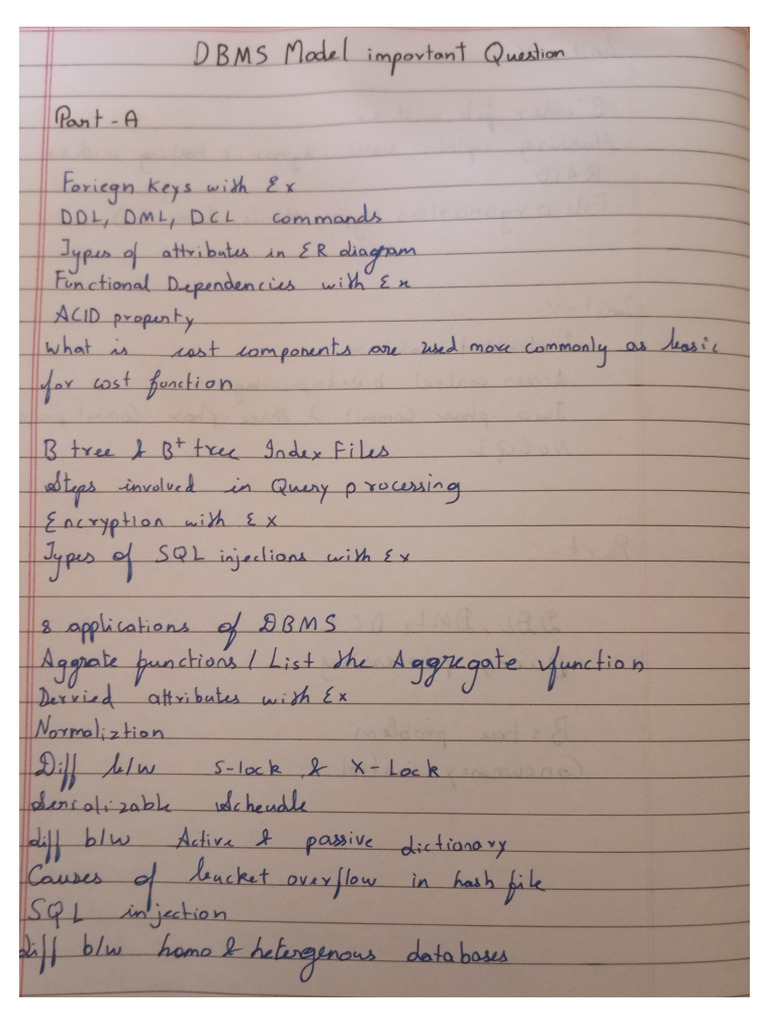 DBMS Model important Question
Part-A
Foriegn keys with Ex
DDL, DML, DCL commands
Types of attributes in ER diagram
Functional Dependencies with Ex
ACID property
What is cost components are used more commonly as basic
for cost function
B tree & B+ tree Index Files
Steps involved in Query processing
Encryption with Ex
Types of SQL injections with Ex
8 applications of DBMS
Aggrate functions / List the Aggregate function
Derried attributes with Ex
Normaliztion
Diff b/w S-lock & X-Lock
Serializable Scheudle
diff b/w Active & passive dictionary
Causes of bucket overflow in hash file
SQL injection
diff b/w homo & hetergenous databases